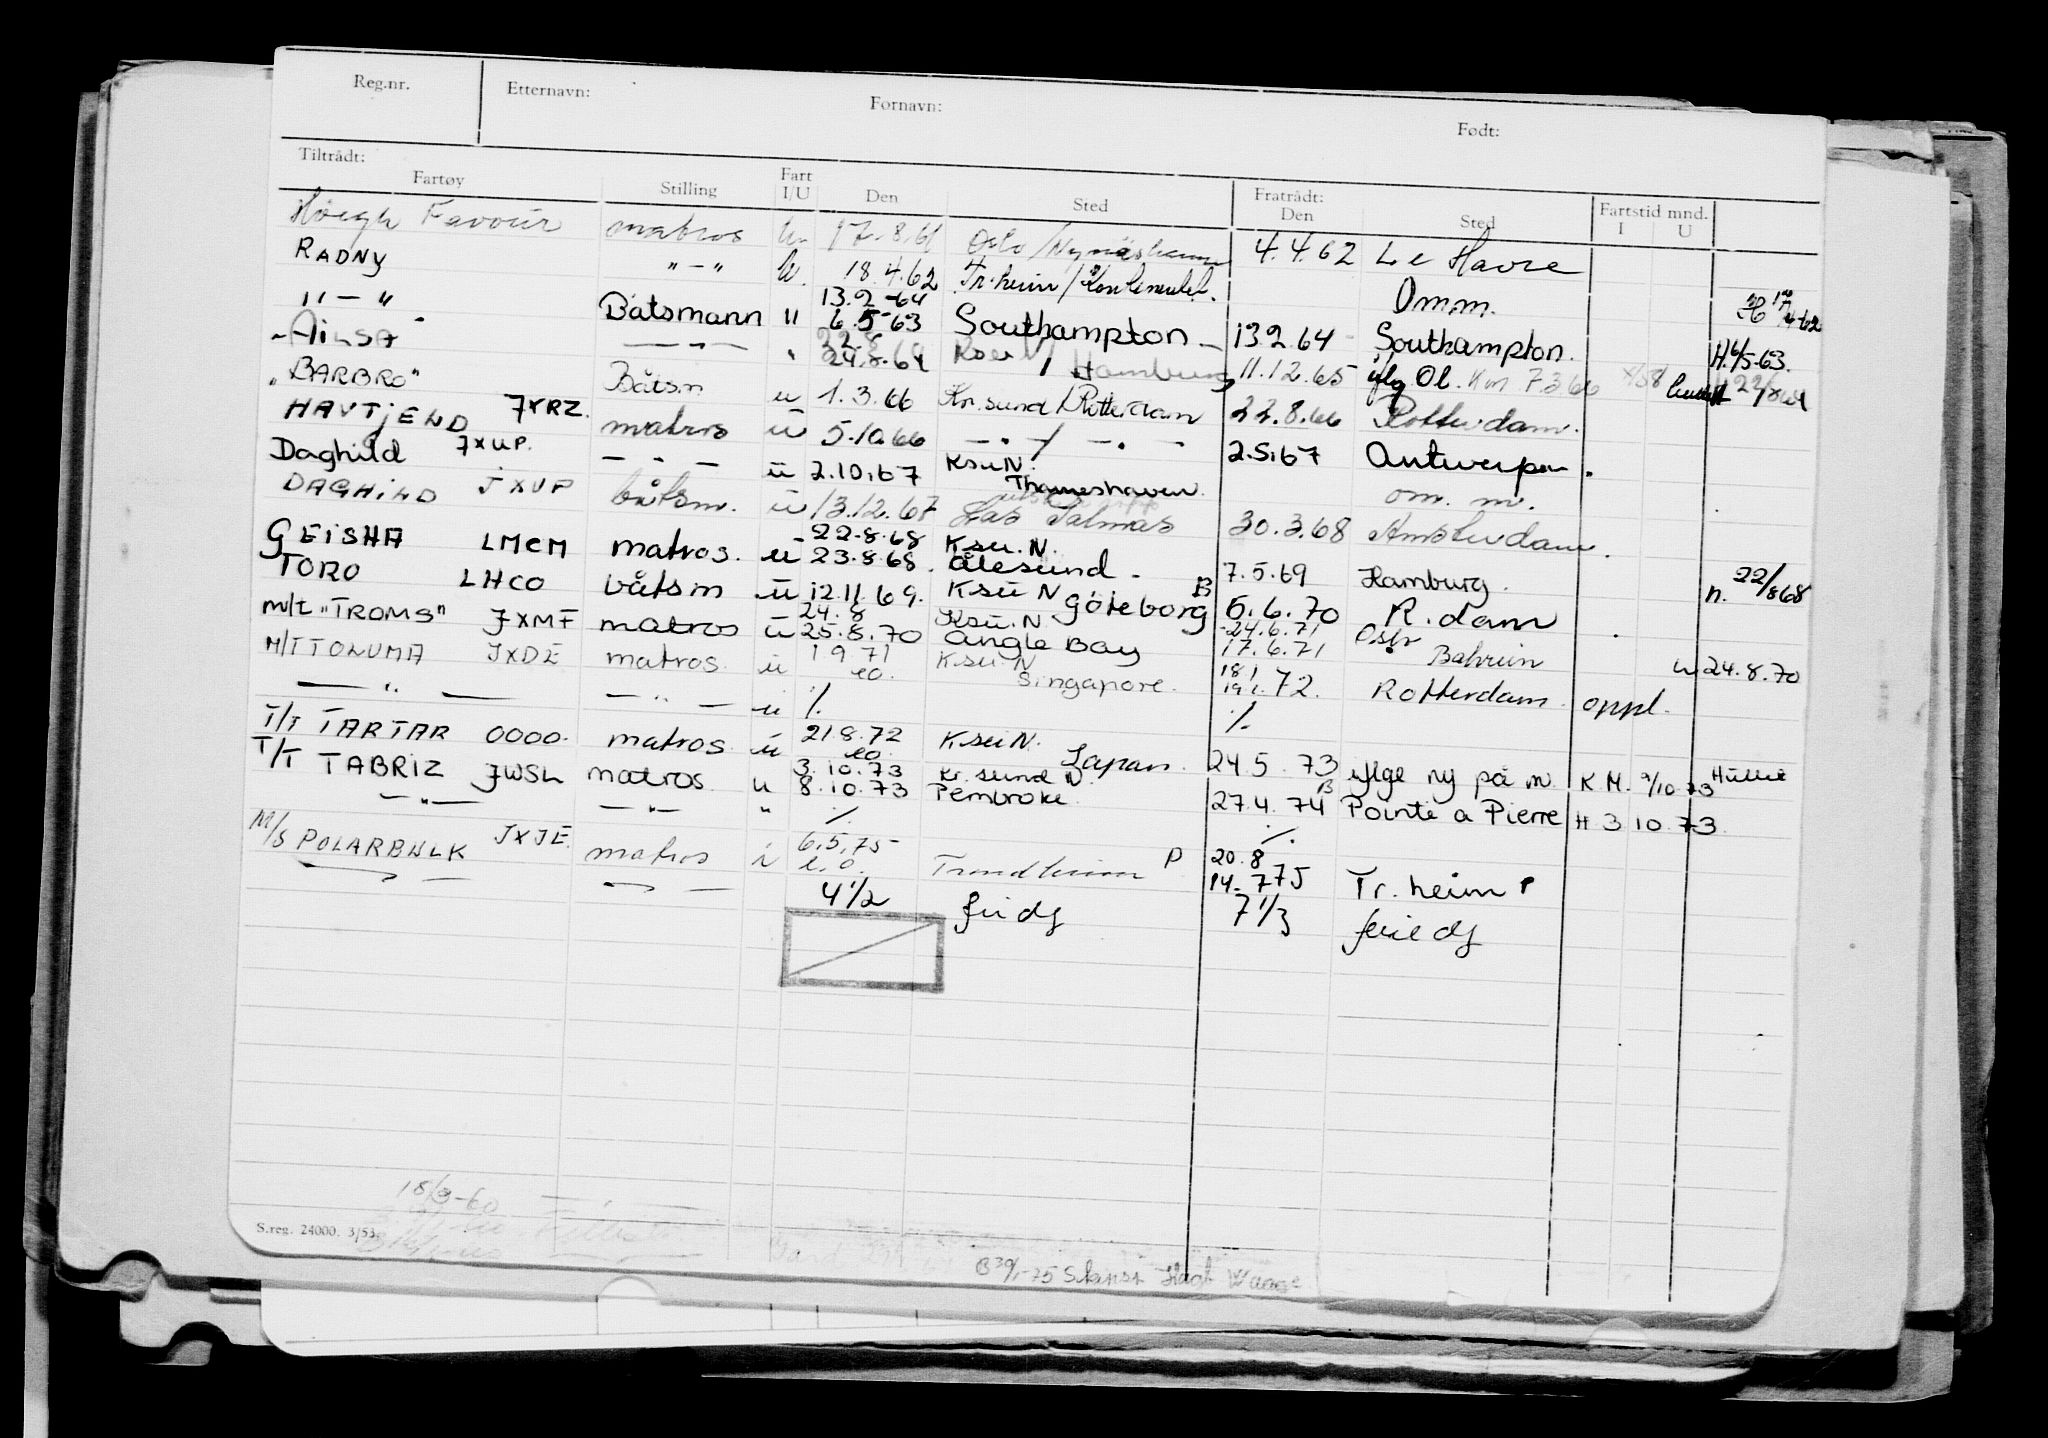 Reg.nr. Etternavn: Fornavn: Født:
Tiltrådt: Fratrådt:
Fartøy Stilling Fart I/U Den Sted Den Sted Fartstid mnd. I U
Höegh Favour matros u. 17.8.61 Oslo/Nynäshamn 4.4.62 Le Havre
RADNY "-" u. 18.4.62 Tr.heim/
"-" Båtsmann " 13.2-64 6.5-63 Southampton Omm.
"AILSA — " — " 22.8 24.8.64 Hamburg 13.2.64 Southampton. H.6/5-63.
"BARBRO" Båtsm u 1.3.66 Kr.sund/Rotterdam 11.12.65 iflg Ol. 7.3.66
HAVTJEND JYRZ. matros u 5.10.66 — " / — " — 22.8.66 Rotterdam.
Daghild JXUP. — " — u 2.10.67 KsuN. Thameshaven 2.5.67 Antwerpen.
DAGHILD JXUP båtsm. u 13.12.67 Las Palmas om. m.
GEISHA LMCM matros. u 22.8.68 23.8.68. Ksu.N. Ålesund - 30.3.68 Amsterdam.
TORO LHCO båtsm u 12.11.69. Ksu N Göteborg 7.5.69 Hamburg. n. 22/868
m/t "TROMS" JXMF matros u 24.8 25.8.70 Ksu.N. Angle Bay 6.6.70 R.dam
M/T TOLUMA JXDE matros. u 1.9.71 eo. Ksu.N Singapore. -24.6.71 17.6.71 Oslo Bahrein u 24.8.70
— " — — " — u /. 18.1 19.1.72. Rotterdam. oppl.
T/T TARTAR 0000. matros u 21.8.72 eo KsuN. Japan. /.
T/T TABRIZ JWSL matros. u 3.10.73 8.10.73 Kr.sund N Pembroke. 24.5.73 iflge ny på m. K.M. 9/10-73
— " — — " — " /. 27.4.74 Pointe a Pierre H 3 10.73.
M/S POLARBULK JXJE. matros i 6.5.75 e.o. Trondheim P /.
20.8 14.775 Tr.heim P
4 1/2 7 1/3
18/3-60
S.reg. 24000. 3/53.